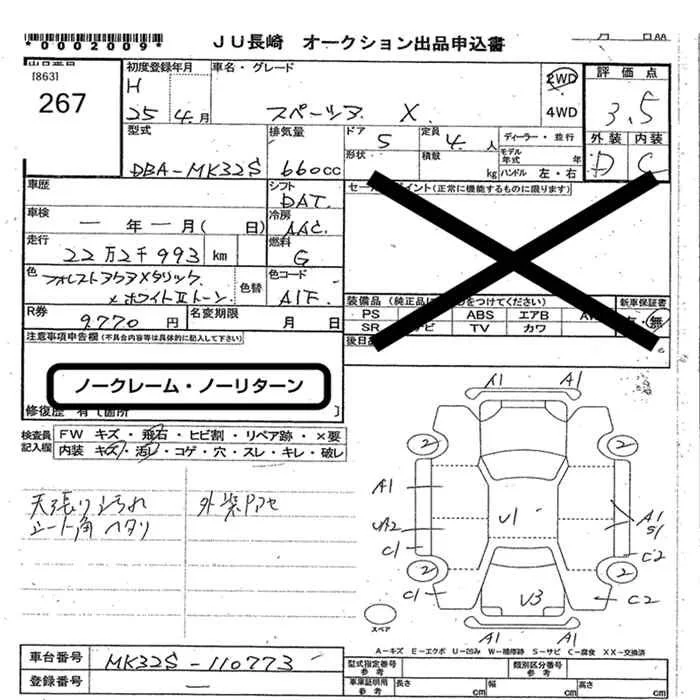 *0002009* JU長崎 オークション出品申込書
出品番号 初度登録年月 車名・グレード 2WD 評価点
[863] H
267 25年4月 スペーシア X 4WD 3.5
型式 排気量 ドア 5 定員 4人 ディーラー・並行 外装 内装
形状 積載 kg モデル年式 年
DBA-MK32S 660cc ハンドル 左・右 D C
車歴 シフト DAT セールスポイント(正常に機能するものに限ります)
車検 一年一月(日) 冷房 AAC
走行 22万2千993km 燃料 G
色 色替 色コード
×ホワイトⅡトーン AIF 装備品 新車保証書
R券 9,770円 名変期限 月 日 PS ABS エアB 無
SR TV カワ
注意事項申告欄(不具合内容等は具体的に記入して下さい) 後日品
ノークレーム・ノーリターン
修復歴 有[箇所]
検査員記入欄 FW キズ・飛石・ヒビ割・リペア跡・×要
内装 キズ・汚し・コゲ・穴・スレ・キレ・破レ
天張りよごれ 外装アセ
シート角ヘタリ
A1 A1
2 2
A1
U1 A1
S1
C1 C2
2 2
C1 U3 C2
スペア A1 A1
A-キズ E-エクボ U-凹み W-補修跡 S-サビ C-腐食 XX-交換済
車台番号 MK32S-110773 型式指定番号 参考 類別区分番号 参考
登録番号 一 車庫証明用 参考 長さ cm 幅 cm 高さ cm